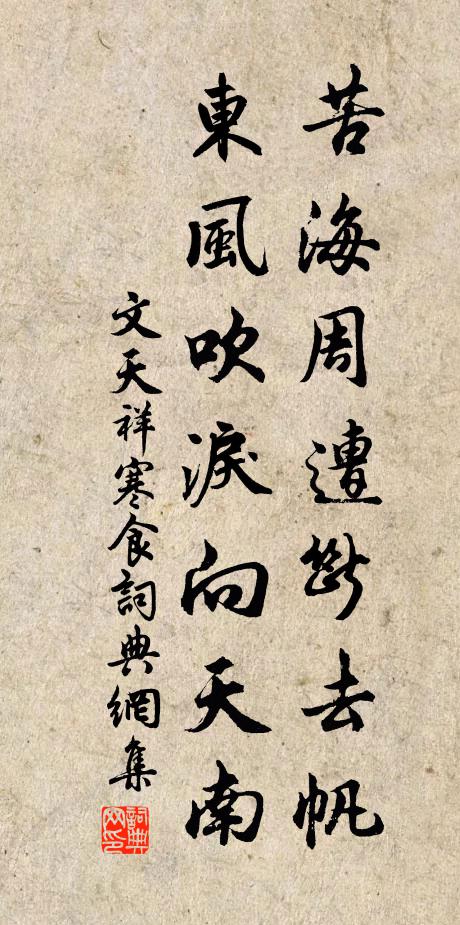 苦海周遭斷去帆
東風吹淚向天南
文天祥寒食詞典網集
詞典网印